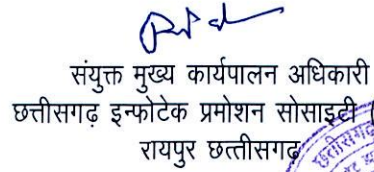 संयुक्त मुख्य कार्यपालन अधिकारी
छत्तीसगढ़ इन्फोटेक प्रमोशन सोसाइटी (
रायपुर छत्तीसगढ़
छत्तीसगढ़